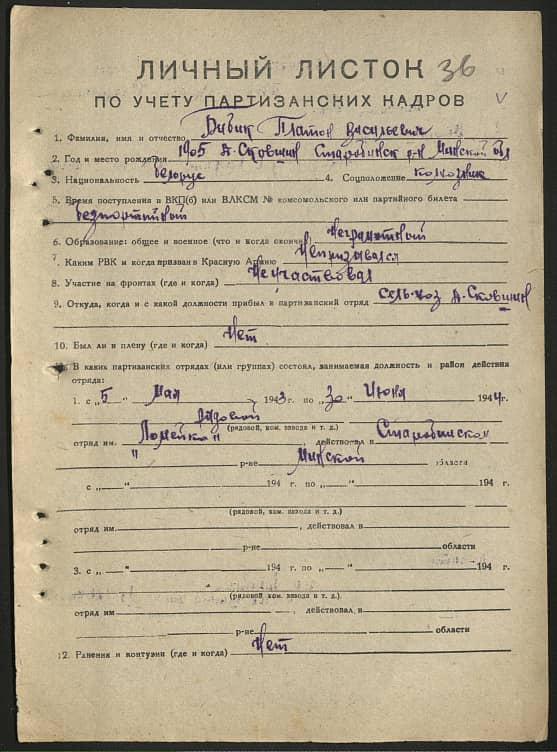 ЛИЧНЫЙ ЛИСТОК 36
ПО УЧЕТУ ПАРТИЗАНСКИХ КАДРОВ
1. Фамилия, имя и отчество Бивик Платон Васильевич
2. Год и место рождения 1905 д. Сковшин Старобинск р-н Минской обл
3. Национальность белорус 4. Соцположение колхозник
5. Время поступления в ВКП(б) или ВЛКСМ № комсомольского или партийного билета
безпортийный
6. Образование: общее и военное (что и когда окончил) Неграмотный
7. Каким РВК и когда призван в Красную Армию Непризывался
8. Участие на фронтах (где и когда) Неучаствовал
9. Откуда, когда и с какой должности прибыл в партизанский отряд сель-хоз д. Сковшин
10. Был ли в плену (где и когда) Нет
В каких партизанских отрядах (или группах) состоял, занимаемая должность и район действия
отряда:
1. с „5 “ Мая 1943 г. по „30 “ Июня 1944 г.
рядовой
(рядовой, ком. взвода и т. д.)
отряд им. Ломейко“, действовал в Старобинско“
“ р-не Минской области
с „ — “ 194 г. по „ — “ 194 г.
(рядовой, ком. взвода и т. д.)
отряд им. , действовал в
р-не области
3. с „ — “ 194 г. по „ — “ 194 г.
(рядовой, ком. взвода и т. д.)
отряд им , действовал в
р-не области
12. Ранения и контузии (где и когда) Нет